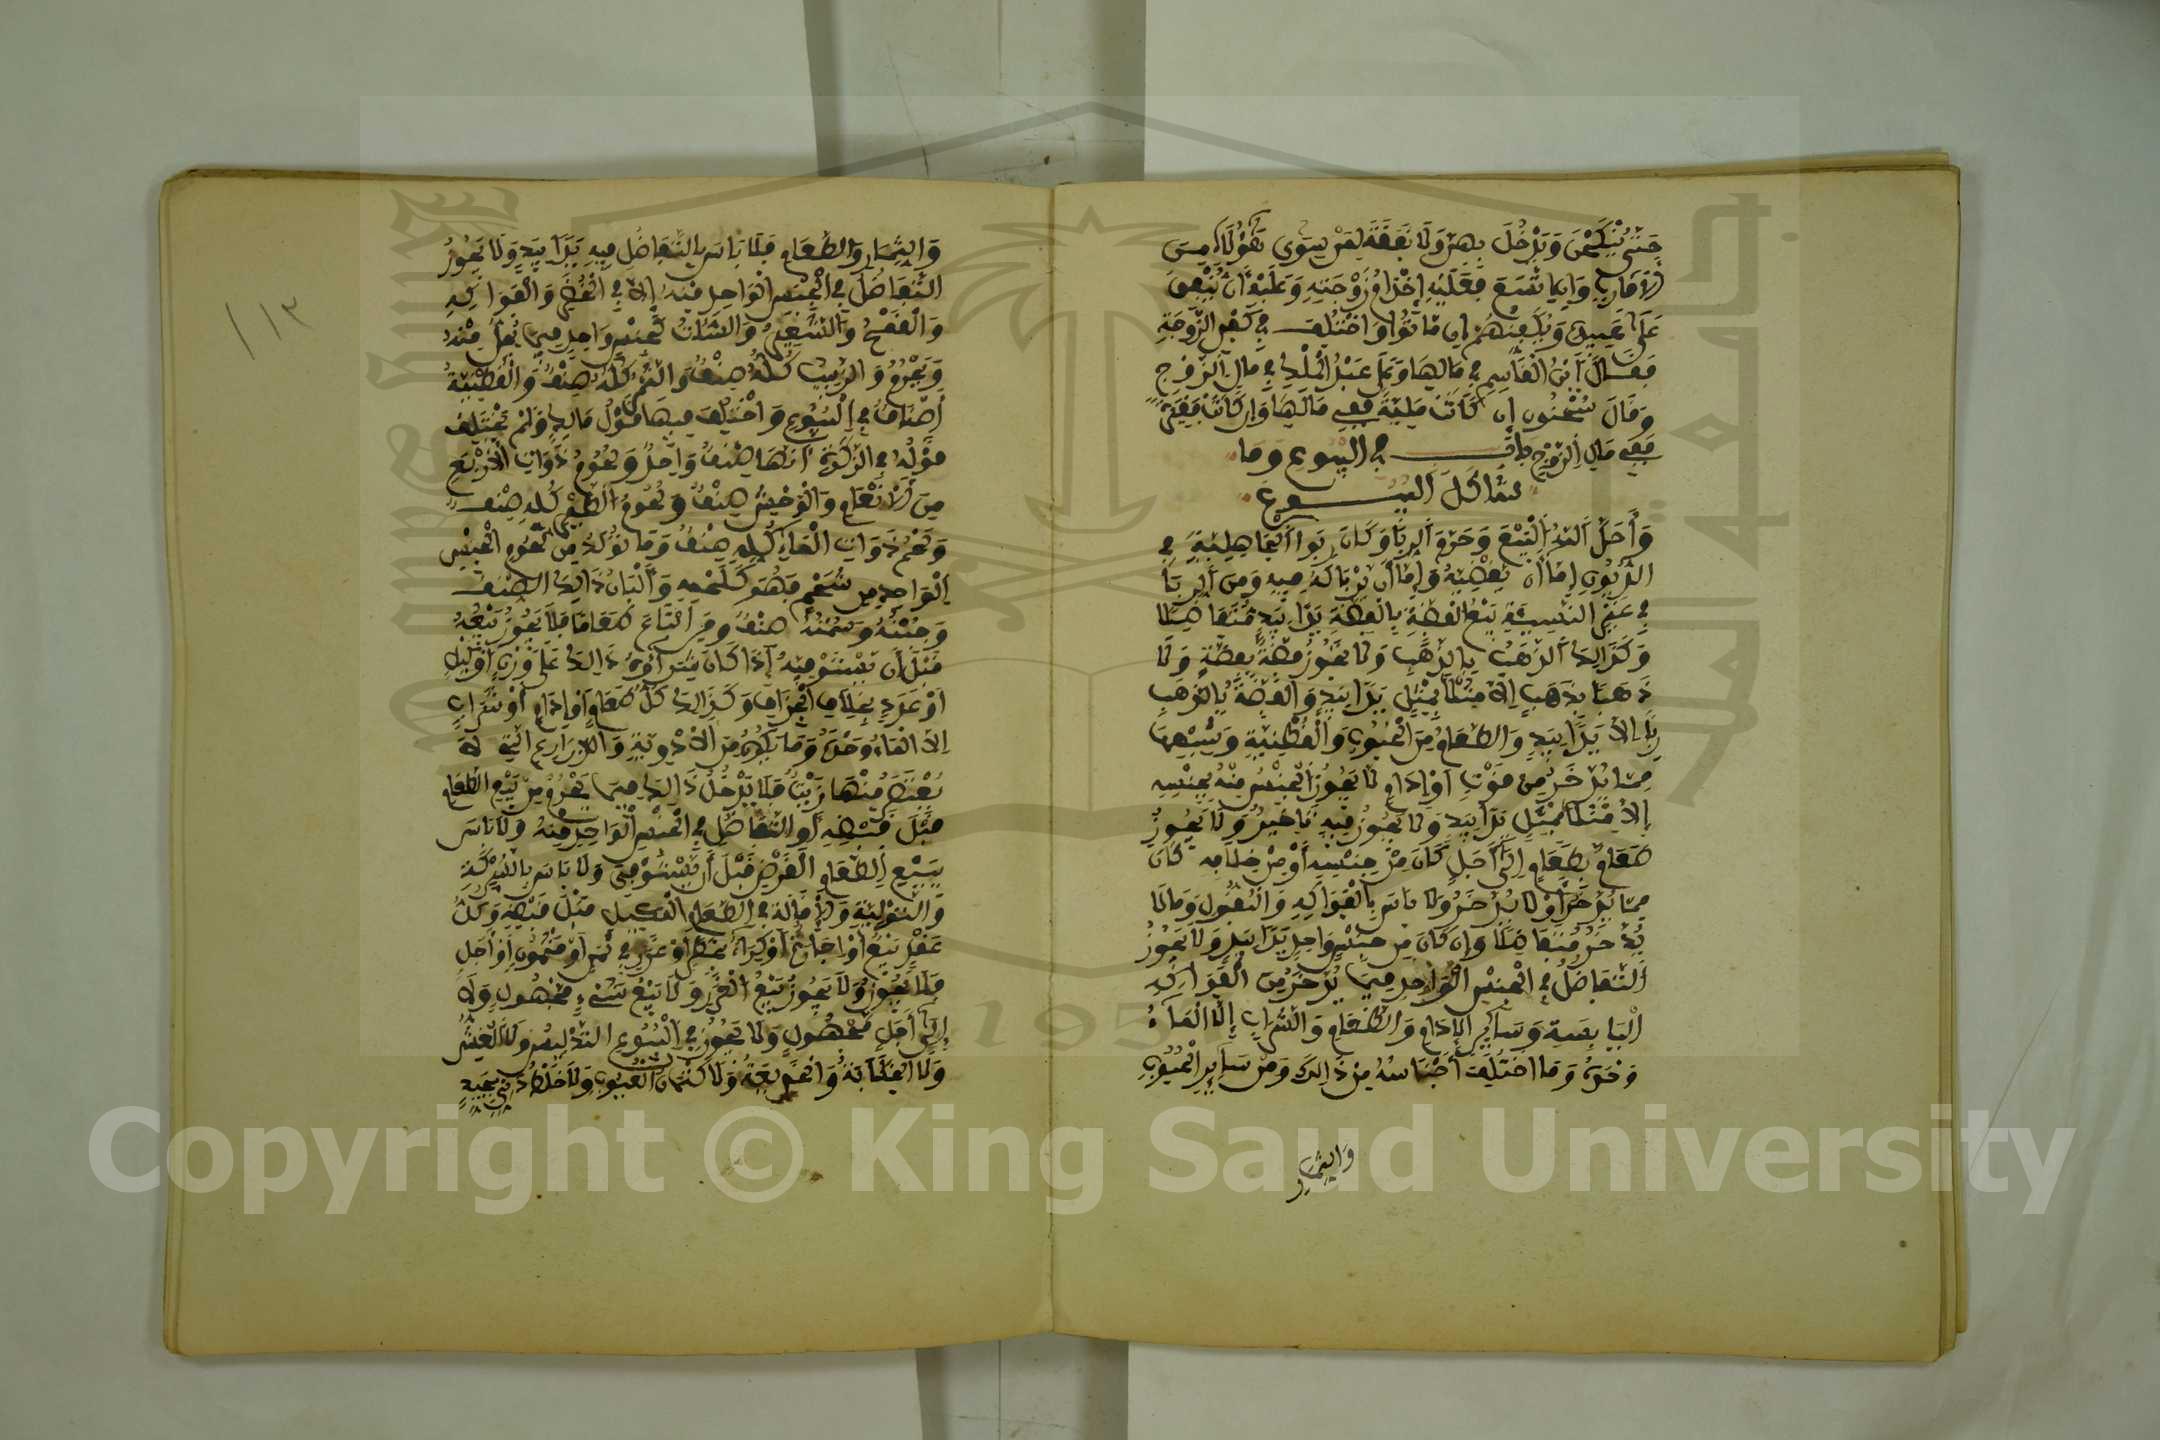 حَتَّى يُنْكَحْنَ وَيُدْخَلَ بِهِنَّ وَلَا نَفَقَةَ لِمَنْ سِوَى هَؤُلَاءِ مِنَ
الْأَقَارِبِ وَإِنِ اتَّسَعَ فَعَلَيْهِ إِخْدَامُ زَوْجَتِهِ وَعَلَيْهِ أَنْ يُنْفِقَ
عَلَى عَبِيدِهِ وَيُكَفِّنَهُمْ إِنْ مَاتُوا وَاخْتُلِفَ فِي كَفَنِ الزَّوْجَةِ
فَقَالَ ابْنُ الْقَاسِمِ فِي مَالِهَا وَقَالَ عَبْدُ الْمَلِكِ فِي مَالِ الزَّوْجِ
وَقَالَ سُحْنُونٌ إِنْ كَانَتْ مَلِيَّةً فَفِي مَالِهَا وَإِنْ كَانَتْ فَقِيرَةً
فَفِي مَالِ الزَّوْجِ بَابٌ فِي الْبُيُوعِ وَمَا
شَاكَلَ الْبُيُوعَ
وَأَحَلَّ اللَّهُ الْبَيْعَ وَحَرَّمَ الرِّبَا وَكَانَ رِبَوا الْجَاهِلِيَّةِ فِي
الدُّيُونِ إِمَّا أَنْ يَقْضِيَهُ وَإِمَّا أَنْ يُرْبِيَ لَهُ فِيهِ وَمِنَ الرِّبَا
فِي غَيْرِ النَّسِيئَةِ بَيْعُ الْفِضَّةِ بِالْفِضَّةِ يَدًا بِيَدٍ مُتَفَاضِلًا
وَكَذَالِكَ الذَّهَبُ بِالذَّهَبِ وَلَا يَجُوزُ فِضَّةٌ بِفِضَّةٍ وَلَا
ذَهَبٌ بِذَهَبٍ إِلَّا مِثْلًا بِمِثْلٍ يَدًا بِيَدٍ وَالْفِضَّةُ بِالذَّهَبِ
رِبًا إِلَّا يَدًا بِيَدٍ وَالطَّعَامُ مِنَ الْحُبُوبِ وَالْقُطْنِيَّةِ وَشِبْهِهَا
مِمَّا يُدَّخَرُ مِنْ قُوتٍ أَوْ إِدَامٍ لَا يَجُوزُ الْجِنْسُ مِنْهُ بِجِنْسِهِ
إِلَّا مِثْلًا بِمِثْلٍ يَدًا بِيَدٍ وَلَا يَجُوزُ فِيهِ تَاخِيرٌ وَلَا يَجُوزُ
طَعَامٌ بِطَعَامٍ إِلَى أَجَلٍ كَانَ مِنْ جِنْسِهِ أَوْ مِنْ خِلَافِهِ كَانَ
مِمَّا يُدَّخَرُ أَوْ لَا يُدَّخَرُ وَلَا بَاسَ بِالْفَوَاكِهِ وَالْبُقُولِ وَمَا لَا
يُدَّخَرُ مُتَفَاضِلًا وَإِنْ كَانَ مِنْ جِنْسٍ وَاحِدٍ يَدًا بِيَدٍ وَلَا يَجُوزُ
التَّفَاضُلُ فِي الْجِنْسِ الْوَاحِدِ فِيمَا يُدَّخَرُ مِنَ الْفَوَاكِهِ
الْيَابِسَةِ وَسَائِرِ الْإِدَامِ وَالطَّعَامِ وَالشَّرَابِ إِلَّا الْمَاءَ
وَحْدَهُ وَمَا اخْتَلَفَ أَجْنَاسُهُ مِنْ ذَالِكَ وَمِنْ سَائِرِ الْحُبُوبِ
وَالثِّمَارِ
وَالثِّمَارِ وَالطَّعَامِ فَلَا بَاسَ بِالتَّفَاضُلِ فِيهِ يَدًا بِيَدٍ وَلَا يَجُوزُ
التَّفَاضُلُ فِي الْجِنْسِ الْوَاحِدِ مِنْهُ إِلَّا فِي الْخُضَرِ وَالْفَوَاكِهِ
وَالْقَمْحُ وَالشَّعِيرُ وَالسُّلْتُ كَجِنْسٍ وَاحِدٍ فِيمَا يَحِلُّ مِنْهُ
وَيَحْرُمُ وَالزَّبِيبُ كُلُّهُ صِنْفٌ وَالتَّمْرُ كُلُّهُ صِنْفٌ وَالْقُطْنِيَّةُ
أَصْنَافٌ فِي الْبُيُوعِ وَاخْتَلَفَ فِيهَا قَوْلُ مَالِكٍ وَلَمْ يَخْتَلِفْ
قَوْلُهُ فِي الزَّكَاةِ أَنَّهَا صِنْفٌ وَاحِدٌ وَلُحُومُ ذَوَاتِ الْأَرْبَعِ
مِنَ الْأَنْعَامِ وَالْوَحْشِ صِنْفٌ وَلُحُومُ الطَّيْرِ كُلِّهِ صِنْفٌ
وَلَحْمُ ذَوَاتِ الْمَاءِ كُلِّهِ صِنْفٌ وَمَا تَوَلَّدَ مِنْ لُحُومِ الْجِنْسِ
الْوَاحِدِ مِنْ شَحْمٍ فَهُوَ كَلَحْمِهِ وَأَلْبَانُ ذَالِكَ الصِّنْفِ
وَجُبْنُهُ وَسَمْنُهُ صِنْفٌ وَمَنِ ابْتَاعَ طَعَامًا فَلَا يَجُوزُ بَيْعُهُ
قَبْلَ أَنْ يَسْتَوْفِيَهُ إِذَا كَانَ شِرَاؤُهُ ذَالِكَ عَلَى وَزْنٍ أَوْ كَيْلٍ
أَوْ عَدَدٍ بِخِلَافِ الْجِزَافِ وَكَذَالِكَ كُلُّ طَعَامٍ أَوْ إِدَامٍ أَوْ شَرَابٍ
إِلَّا الْمَاءَ وَحْدَهُ وَمَا يَكُونُ مِنَ الْأَدْوِيَةِ وَالزَّرَارِعِ الَّتِي لَا
يُعْتَصَرُ مِنْهَا زَيْتٌ فَلَا يَدْخُلُ ذَالِكَ فِيمَا يَحْرُمُ مِنْ بَيْعِ الطَّعَامِ
قَبْلَ قَبْضِهِ أَوِ التَّفَاضُلِ فِي الْجِنْسِ الْوَاحِدِ مِنْهُ وَلَا بَاسَ
بِبَيْعِ الطَّعَامِ الْقَرْضِ قَبْلَ أَنْ يَسْتَوْفِيَ وَلَا بَاسَ بِالشِّرْكَةِ
وَالتَّوْلِيَةِ وَالْإِقَالَةِ فِي الطَّعَامِ الْمَكِيلِ قَبْلَ قَبْضِهِ وَكُلُّ
عَقْدِ بَيْعٍ أَوْ إِجَارَةٍ أَوْ كِرَاءٍ بِخَطَرٍ أَوْ غَرَرٍ فِي ثَمَنٍ أَوْ مَثْمُونٍ أَوْ أَجَلٍ
فَلَا يَجُوزُ وَلَا يَجُوزُ بَيْعُ الْغَرَرِ وَلَا بَيْعُ شَيْءٍ مَجْهُولٍ وَلَا
إِلَى أَجَلٍ مَجْهُولٍ وَلَا يَجُوزُ فِي الْبُيُوعِ التَّدْلِيسُ وَلَا الْغِشُّ
وَلَا الْخِلَابَةُ وَلَا الْخَدِيعَةُ وَلَا كِتْمَانُ الْعُيُوبِ وَلَا خَلْطُ دَنِيٍّ بِجَيِّدٍ
١١٣
Copyright © King Saud University
جامعة الملك سعود
King Saud University
1957